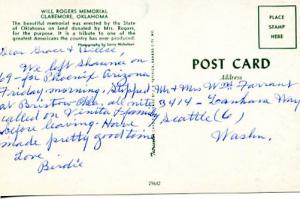 WILL ROGERS MEMORIAL
CLAREMORE, OKLAHOMA
The beautiful memorial was erected by the State
of Oklahoma on land donated by Mrs. Rogers,
for the purpose. It is a tribute to one of the
greatest Americans the country has ever produced.
Photography by
PLACE
STAMP
HERE
POST CARD
Address
Dear Grace &
We left Shauna on
69 - for Phoenix Arizona
Friday morning. Stopped
at Bristow Okla, all nite
called on Vinita & family
before leaving. Have
made pretty good time
Love
Birdie
Mr & Mrs W H Farrant
3414 - Way
Seattle (6)
Washn.